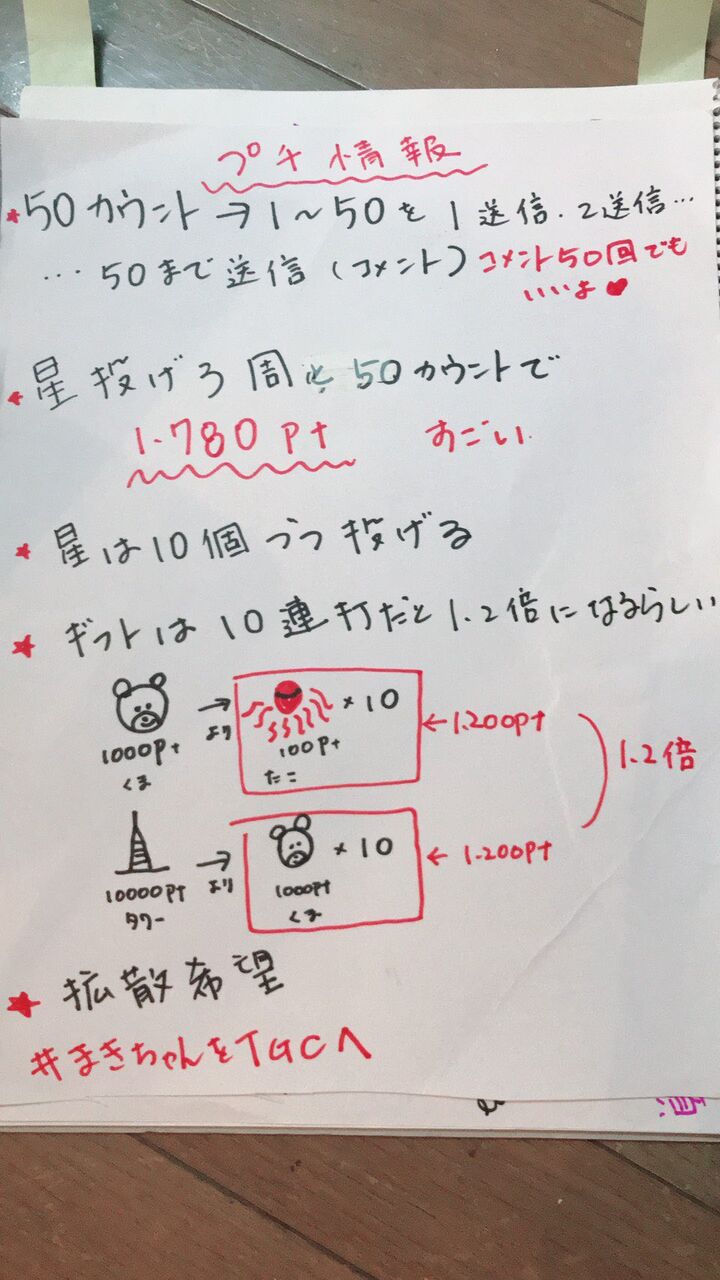 プチ情報
★50カウント→1〜50を1送信.2送信…
…50まで送信(コメント)コメント50回でも
いいよ♥
★星投げ3周と50カウントで
1.780Pt すごい
★星は10個づつ投げる
★ギフトは10連打だと1.2倍になるらしい
1000Pt くま → より 100Pt たこ ×10 ←1.200pt
1.2倍
10000Pt タワー → より 1000pt くま ×10 ←1.200pt
★拡散希望
#まきちゃんをTGCへ